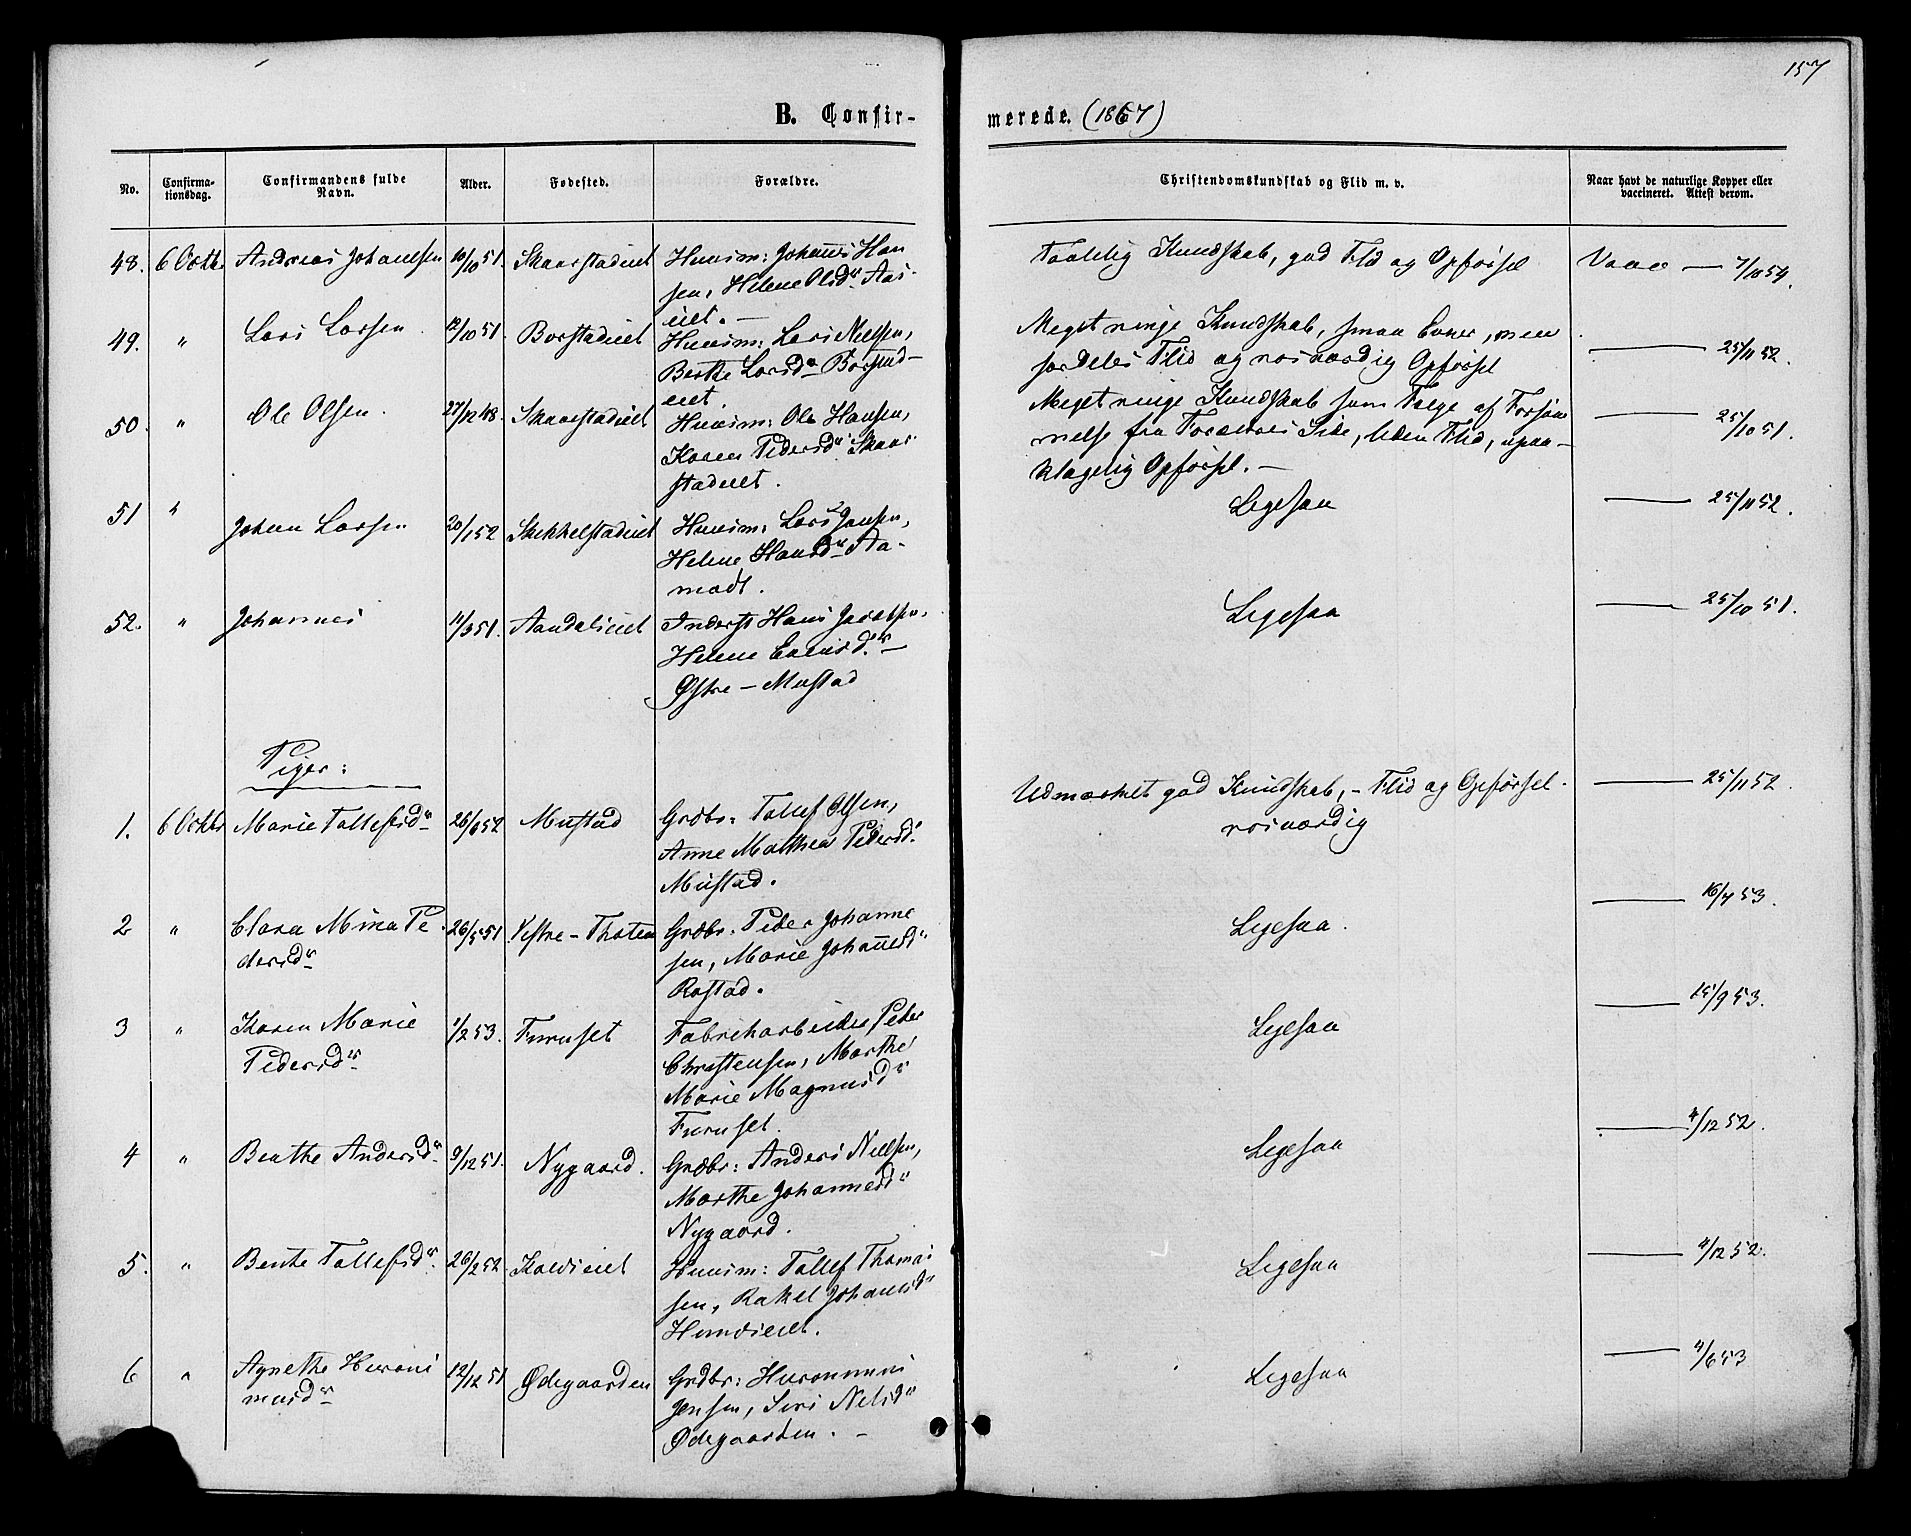 157
B. Confir-
merede. (1867)
No.
Confirma-
tionsdag.
Confirmandens fulde
Navn.
Alder.
Fødested.
Forældre.
Christendomskundskab og Flid m. v.
Naar havt de naturlige Kopper eller
vaccineret. Attest derom.
48. 6 Octbr Andreas Johansen 10/10 51. Skaarstadeiet Huusm: Johañes Han
sen, Helene Olsdr
eiet. —
Taalelig Kundskab, god Flid og Opførsel
Vacc — 7/10 54.
49. " Lars Larsen. 12/10 51. Borstadeiet Huusm: Lars Nielsen,
Berthe Larsdr Borstad-
eiet
Meget ringe Kundskab, smaa Evner, men
fordeles Flid og rosværdig Opførsel
— 25/11 52.
50. " Ole Olsen. 27/12 48. Skaarstadeiet Huusm: Ole Hansen,
Karen Pedersdr Skaar
stadeiet.
Meget ringe Kundskab som Følge af Forsøm
melse fra Forældres Side, liden Flid, upaa-
klagelig Opførsel. —
— 25/10 51.
51 " Johan Larsen 20/1 52 Skikkelstadeiet Huusm: Lars Jansen,
Helene Hansdr Aa-
modt.
Ligesaa
— 25/11 52.
52. " Johannes 11/3 51. Inderst Hans Jacobsen,
Helene Evensd.r —
Østre — Mustad
Ligesaa
— 25/10 51.
Piger:
1. 6 Octbr Marie Tollefsdr 26/6 52 Mustad Grdbr: Tollef Olsen,
Anne Mathea Pedersd.
Mustad.
Udmærket god Kundskab, - Flid og Opførsel
rosværdig
— 25/11 52.
2 " Clara Mina Pe
dersdr 26/5 51 Vestre-Thoten Grdbr: Peder Johanne
sen, Marie Johañesdr
Rostad.
Ligesaa.
— 16/7 53.
3 " Karen Marie
Pedersdr 1/2 53. Furuset Fabrikarbeider Peder
Christensen, Marthe
Marie Magnusdr
Furuset.
Ligesaa
— 15/9 53.
4 " Benthe Andersdr 9/12 51. Nygaard. Grdbr: Anders Nielsen,
Marthe Johannesdr
Nygaard.
Ligesaa
— 4/12 52.
5. " Bente Tollefsdr 26/2 52 Huusm: Tollef Thomas
sen, Rakel Johansdr
Ligesaa
— 4/12 52.
6 " Agnethe Hieroni
musdr 12/12 51 Ødegaarden Grdbr: Hieronimus
Jensen, Siri Nielsdr
Ødegaarden. —
Ligesaa
— 4/6 53